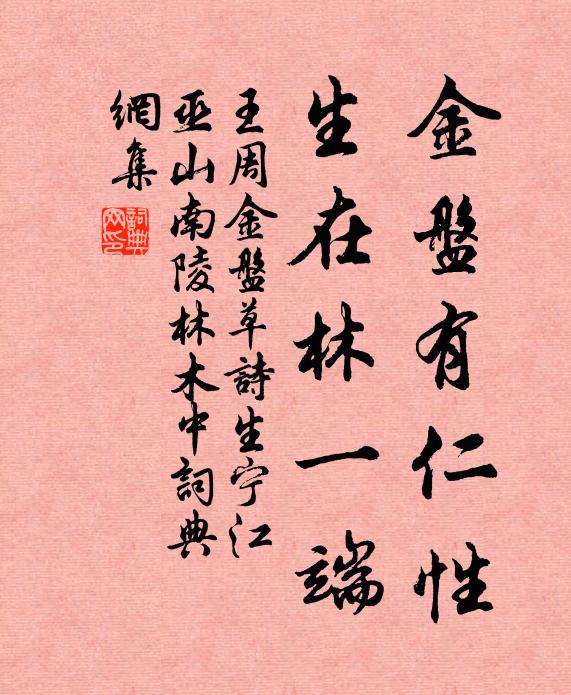 金盤有仁性
生在林一端
王周金盤草詩生宁江
巫山南陵林木中詞典
網集
詞典
网印